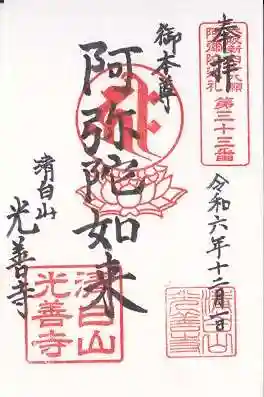 奉拝
第三十三番
御本尊
阿弥陀如来
清白山
光善寺
令和六年十二月一日
清白山
光善寺
清白山
光善寺